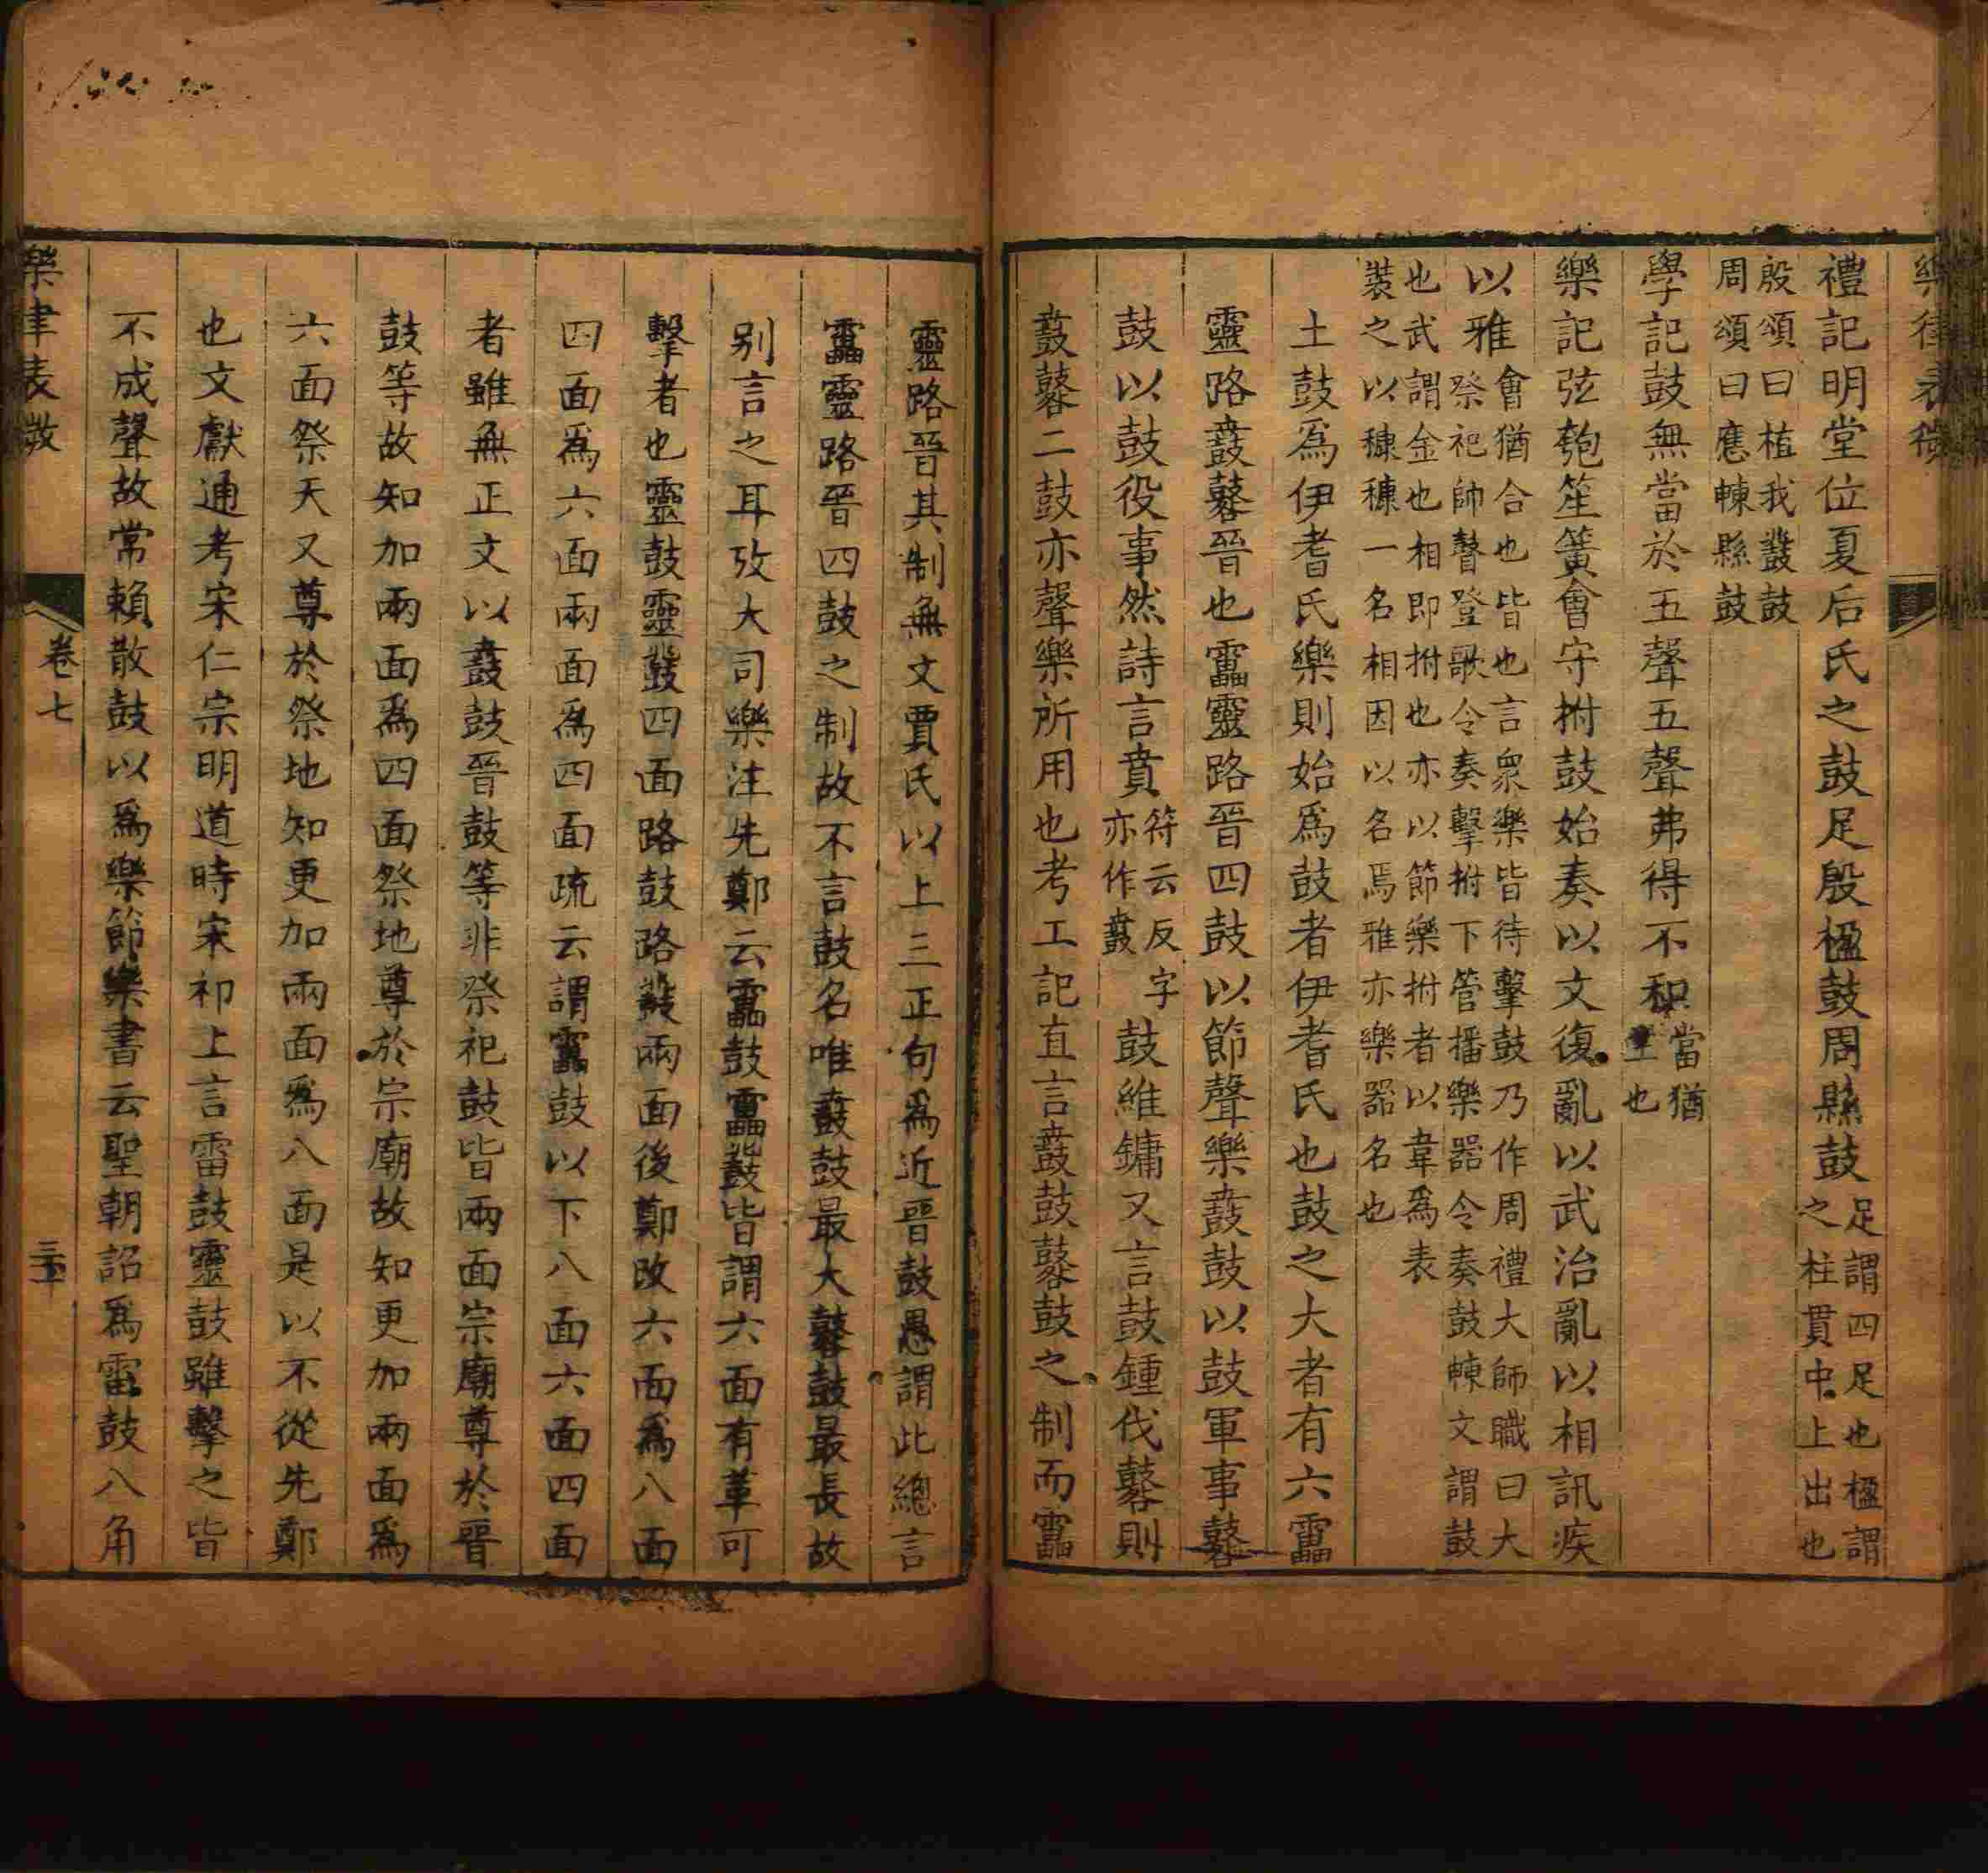 樂律表微
禮記明堂位夏后氏之鼓足殷楹鼓周縣鼓足謂四足也楹謂之柱貫中上出也
殷頌曰植我鼗鼓周頌曰應朄縣鼓
學記鼓無當於五聲五聲弗得不和當猶主也
樂記弦匏笙簧會守拊鼓始奏以文復亂以武治亂以相訊疾
以雅會猶合也皆也言眾樂皆待擊鼓乃作周禮大師職曰大祭祀帥瞽登歌令奏擊拊下管播樂器令奏鼓朄文謂鼓
也武謂金也相即拊也亦以節樂拊者以韋為表裝之以糠糠一名相因以名焉雅亦樂器名也
土鼓爲伊耆氏樂則始爲鼓者伊耆氏也鼓之大者有六靁
靈路鼖鼛晉也靁靈路晉四鼓以節聲樂鼖鼓以鼓軍事鼛
鼓以鼓役事然詩言賁符云反字亦作鼖鼓維鏞又言鼓鍾伐鼛則
鼖鼛二鼓亦聲樂所用也考工記直言鼖鼓鼛鼓之制而靁
靈路晉其制無文賈氏以上三正句爲近晉鼓愚謂此總言
靁靈路晉四鼓之制故不言鼓名唯鼖鼓最大鼛鼓最長故
别言之耳攷大司樂注先鄭云靁鼓靁鼗皆謂六面有革可
擊者也靈鼓靈鼗四面路鼓路鼗兩面後鄭改六面爲八面
四面爲六面兩面爲四面疏云謂靁鼓以下八面六面四面
者雖無正文以鼖鼓晉鼓等非祭祀鼓皆兩面宗廟尊於晉
鼓等故知加兩面爲四面祭地尊於宗廟故知更加兩面爲
六面祭天又尊於祭地知更加兩面爲八面是以不從先鄭
也文獻通考宋仁宗明道時宋祁上言雷鼓靈鼓雖擊之皆
不成聲故常賴散鼓以爲樂節樂書云聖朝詔爲雷鼓八角
樂律表微
卷七